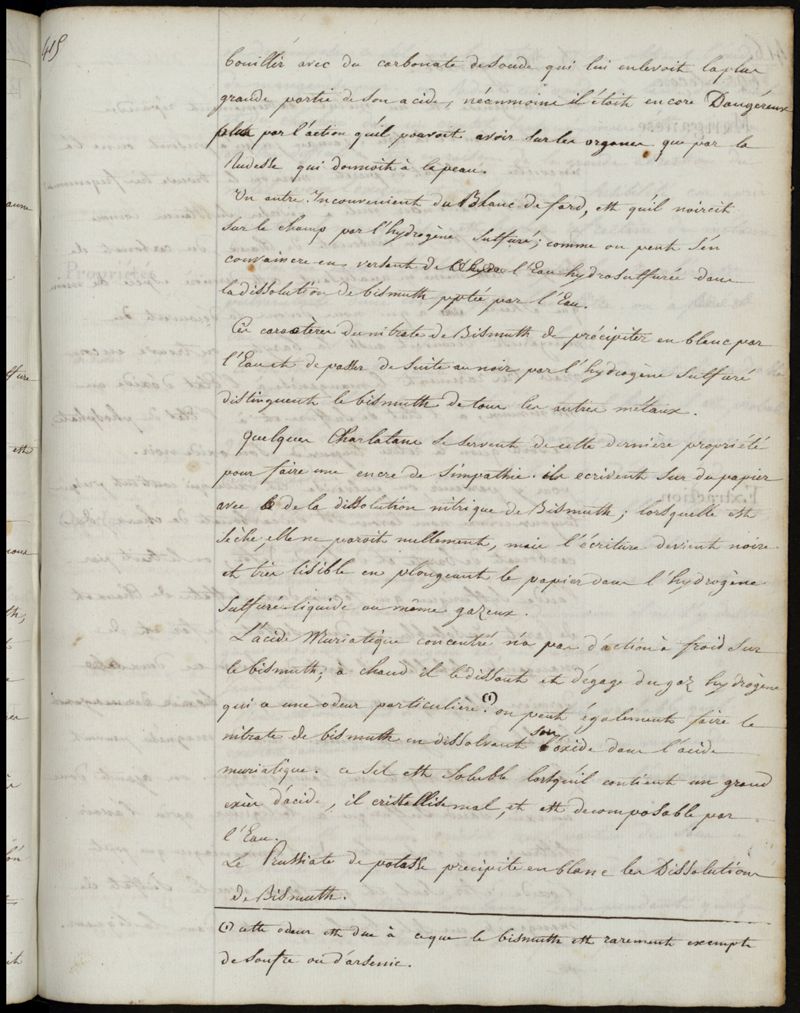 415
bouillir avec du carbonate de soude qui lui enlevoit la plus
grande partie de son acide, néanmoins il étoit encore Dangéreux
plus par l'action qu'il pouvoit avoir sur les organes que par la
Rudesse qui donnoit à la peau.
Un autre Inconvenient du Blanc de fard, est qu'il noircit
sur le champ par l'hydrogène sulfuré; comme on peut s'én
convaincre en versant de l'Eau hydrosulfurée dans
la dissolution de bismuth pptée par l'Eau.
Ces caractères du nitrate de Bismuth de précipiter en blanc par
l'Eau et de passer de suite au noir par l'hydrogène sulfuré
distinguent le bismuth de tous les autres métaux.
Quelques Charlatans se servent de cette dernière propriété
pour faire une encre de simpathie. ils ecrivent sur du papier
avec de la dissolution nitrique de Bismuth; lorsquelle est
sèche, elle ne paroit nullement, mais l'écriture devient noire
et très lisible en plongeant le papier dans l'hydrogène
sulfuré liquide ou même gazeux.
L'acide Muriatique concentré n'a pas d'action à froid sur
le bismuth; à chaud il le dissout et dégage du gaz hydrogène
qui a une odeur particulière (1). on peut également faire le
nitrate de bismuth en dissolvant son oxide dans l'acide
muriatique. ce sel est soluble lorsqu'il contient un grand
exces d'acide, il cristallise mal, et est decomposable par
l'Eau.
Le Prussiate de potasse precipite en blanc les Dissolutions
de Bismuth.
(1) cette odeur est due à ce que le bismuth est rarement exempt
de soufre ou d'arsenic.